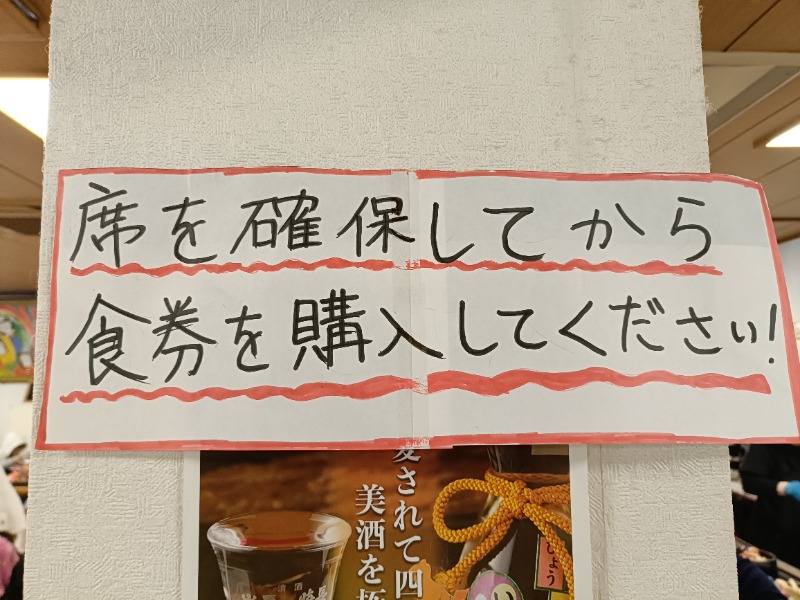 席を確保してから
食券を購入してください!
愛されて四
美酒を
清酒
しょう